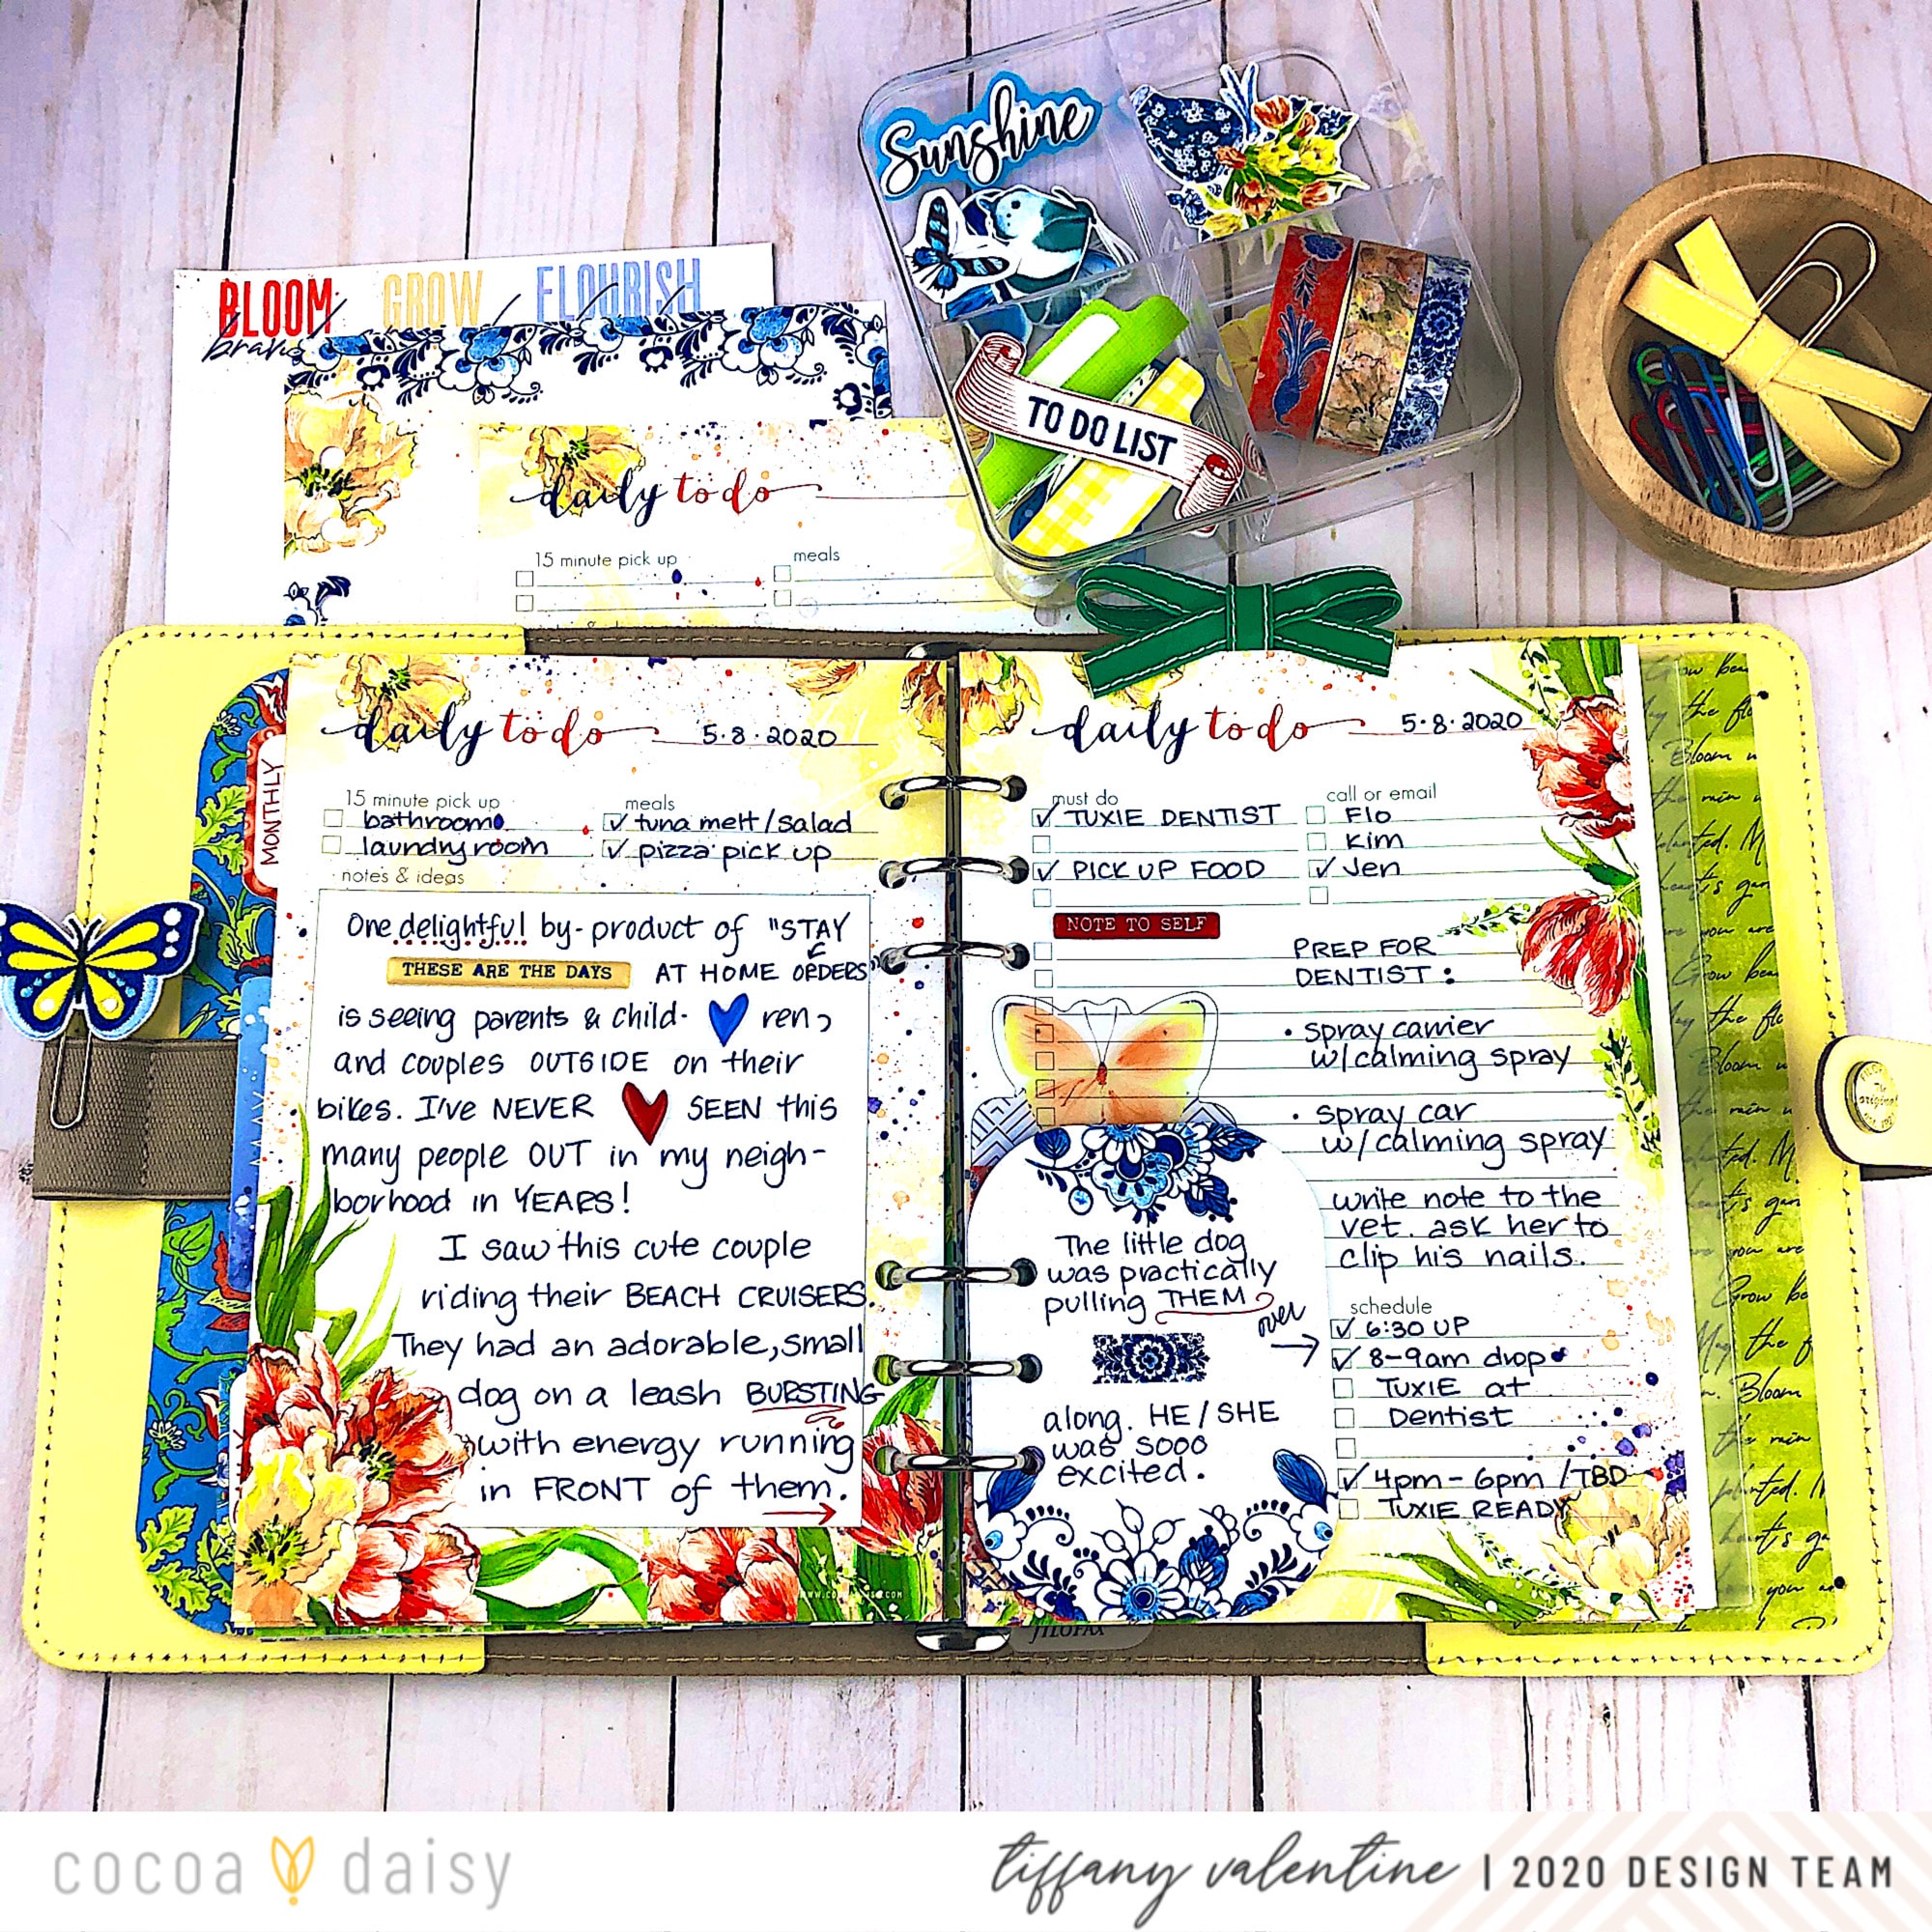 Sunshine
BLOOM GROW FLOURISH
brave
TO DO LIST
daily to do
15 minute pick up
meals
MONTHLY
MAY
daily to do 5.8.2020
15 minute pick up
bathroom
laundry room
meals
tuna melt/salad
pizza pick up
notes & ideas
One delightful by-product of "STAY
THESE ARE THE DAYS
AT HOME ORDERS"
is seeing parents & child-
ren,
and couples OUTSIDE on their
bikes. I've NEVER SEEN this
many people OUT in my neigh-
borhood in YEARS!
I saw this cute couple
riding their BEACH CRUISERS.
They had an adorable, small
dog on a leash BURSTING
with energy running
in FRONT of them.
daily to do 5.8.2020
must do
TUXIE DENTIST
PICK UP FOOD
call or email
Flo
Kim
Jen
NOTE TO SELF
PREP FOR
DENTIST:
• spray carrier
w/calming spray
• spray car
w/calming spray
write note to the
vet. ask her to
clip his nails.
The little dog
was practically
pulling THEM
over
along. HE/SHE
was sooo
excited.
schedule
6:30 UP
8-9am drop
TUXIE at
Dentist
4pm-6pm/TBD
TUXIE READY
original
FILOFAX
cocoa daisy
tiffany valentine | 2020 DESIGN TEAM